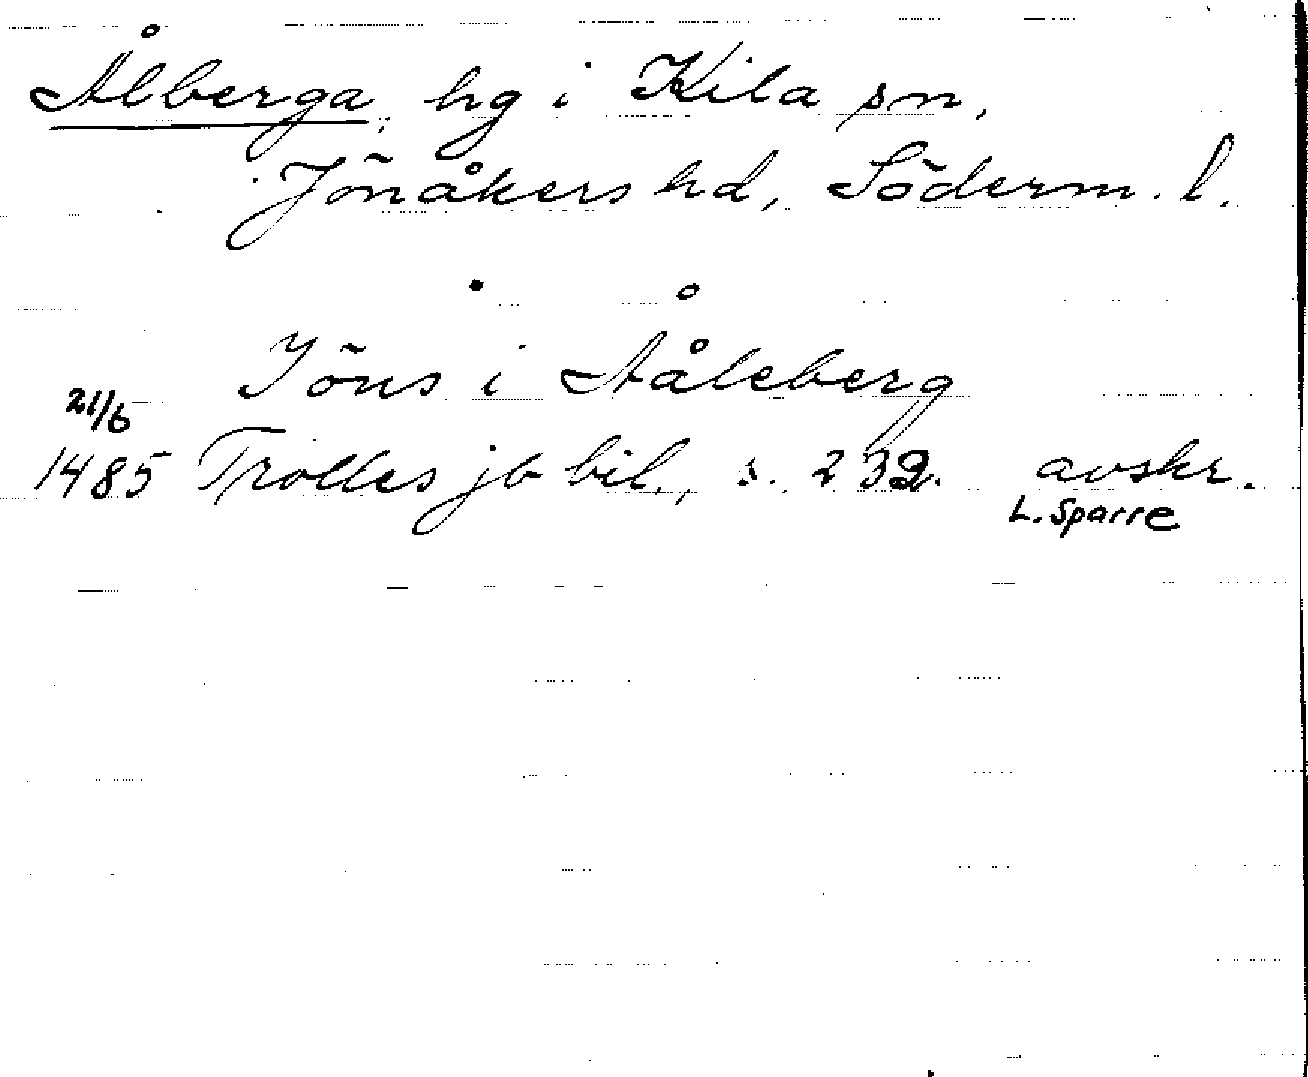 Ålberga, hg i Kila sn,
Jönåkers hd, Söderm. l.
Jöns i Ååleberg
21/6
1485 Trolles jb bil., s. 232. avskr.
L. Sparre